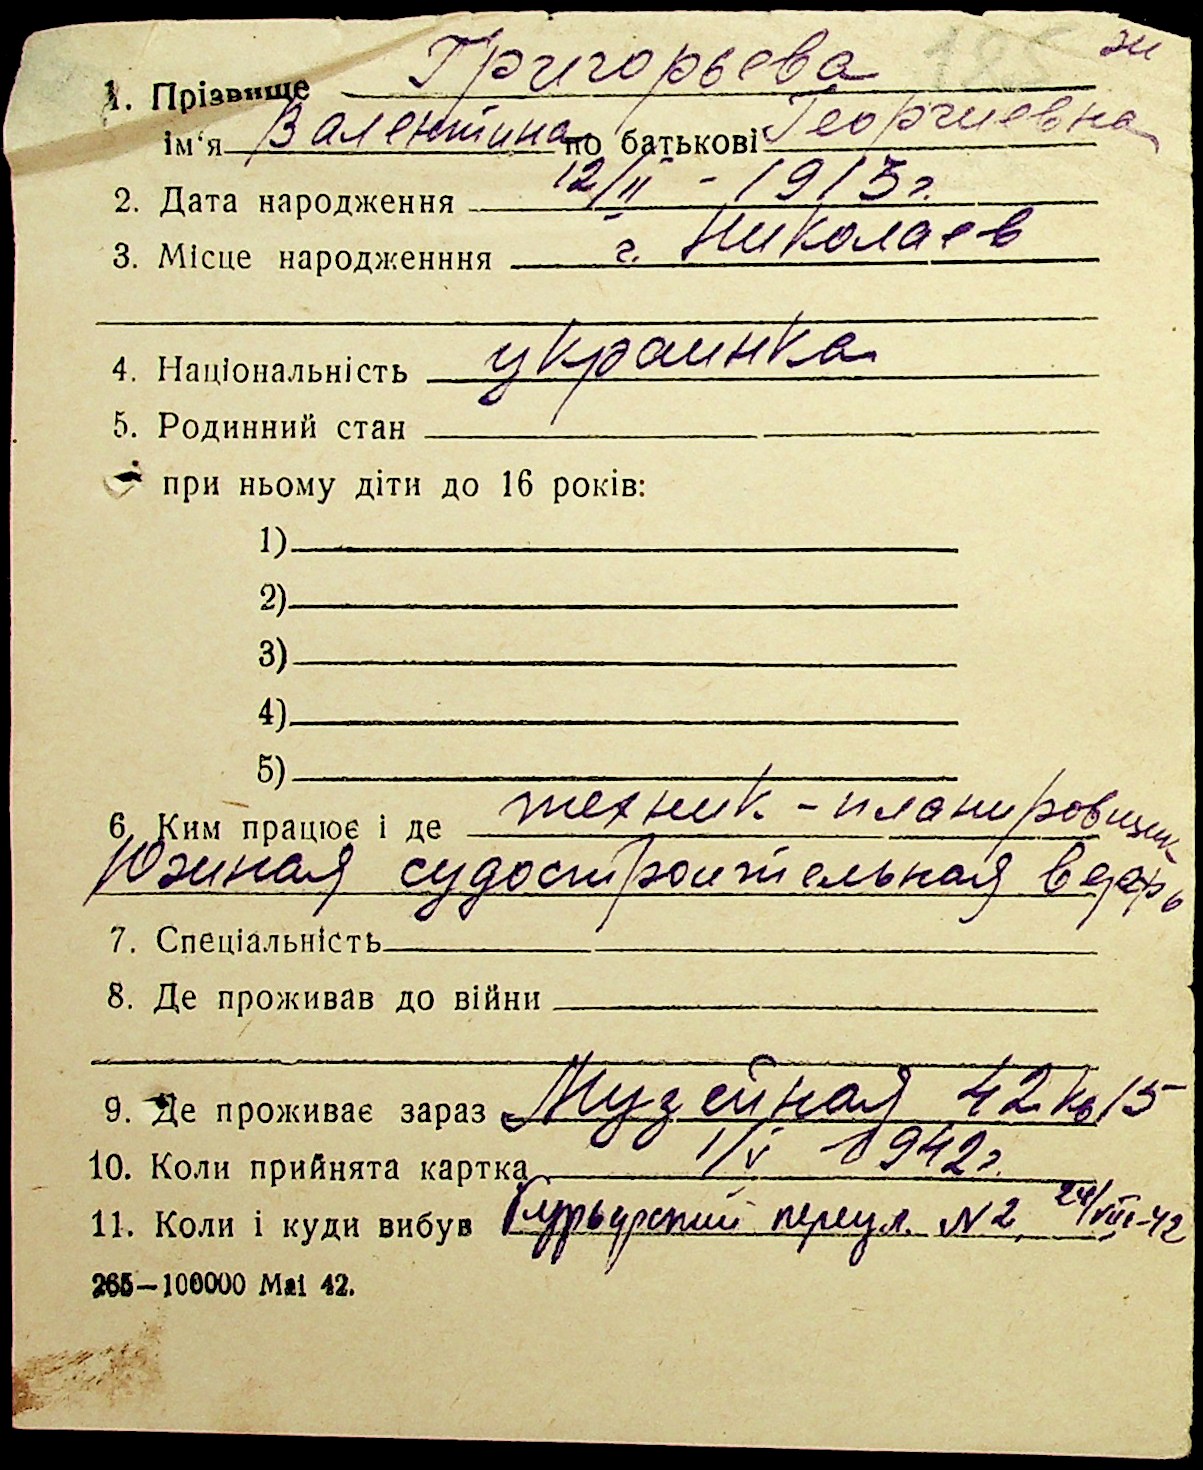 эи
1. Прізвище Григорьева
ім'я Валентина по батькові Георгиевна
2. Дата народження 12/II - 1913 г.
3. Місце народженння г. Николаев
4. Національність украинка
5. Родинний стан
при ньому діти до 16 років:
1)
2)
3)
4)
5)
6. Ким працює і де техник - планировщик
Южная судостроительная верфь
7. Спеціальність
8. Де проживав до війни
9. Де проживає зараз Музейная 42 кв 15
10. Коли прийнята картка 1/V 1942 г.
11. Коли і куди вибув переул. N 2 24/VIII-42
265—100000 Mai 42.